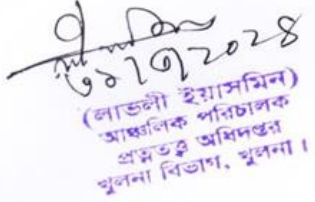 ৩১/০৭/২০২৪
(লাভলী ইয়াসমিন)
আঞ্চলিক পরিচালক
প্রত্নতত্ত্ব অধিদপ্তর
খুলনা বিভাগ, খুলনা।